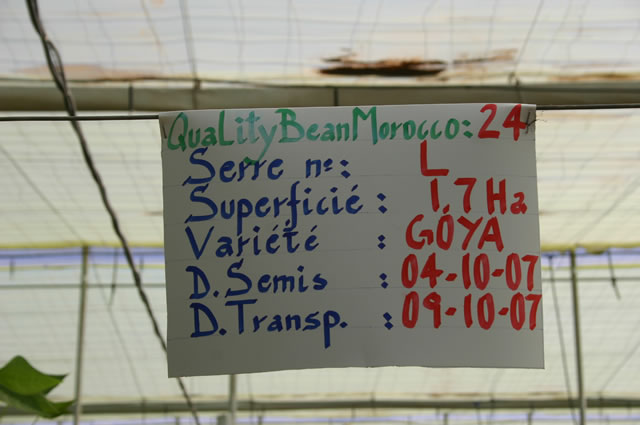 QuaLityBeanMorocco: 24
Serre nº: L
Superficié : 1.7 Ha
Variété : GÓYA
D. Semis : 04-10-07
D. Transp. : 09-10-07